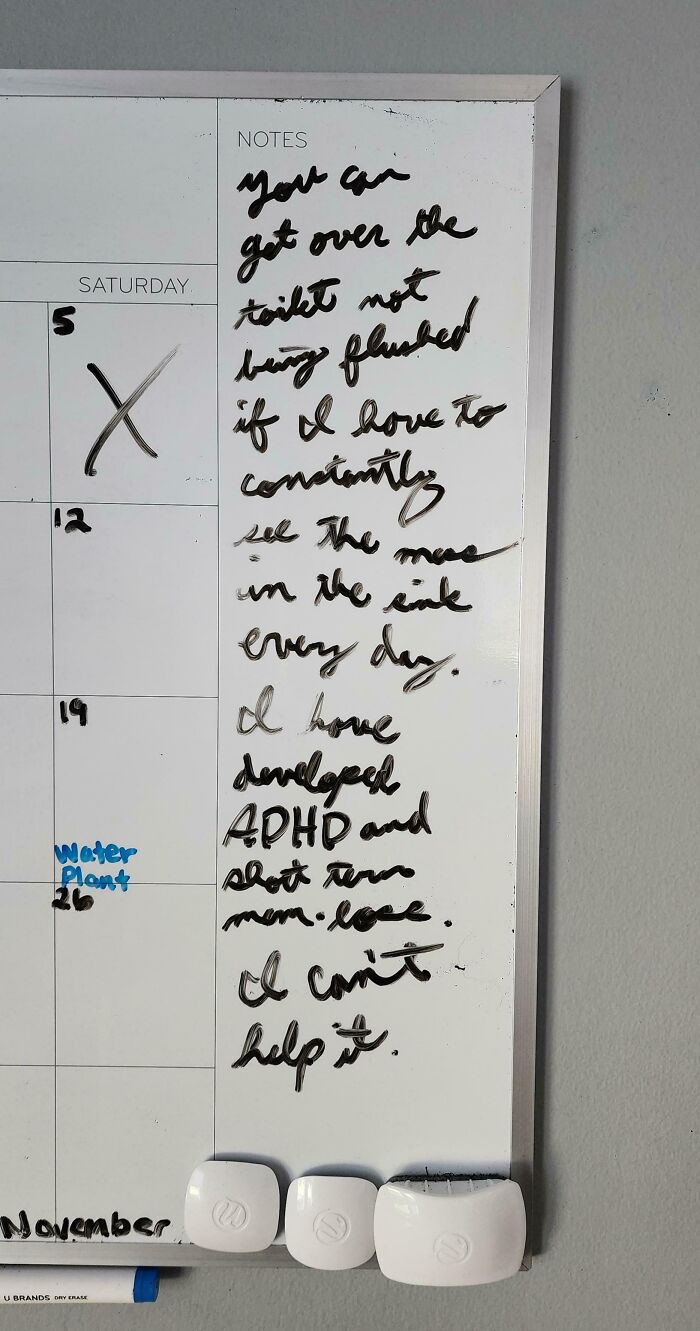 NOTES
You can
get over the
toilet not
being flushed
if I have to
constantly
see the mess
in the sink
every day.
I have
developed
ADHD and
short term
mem. loss.
I can't
help it.
SATURDAY
5
X
12
19
Water
Plant
26
November
U BRANDS DRY ERASE